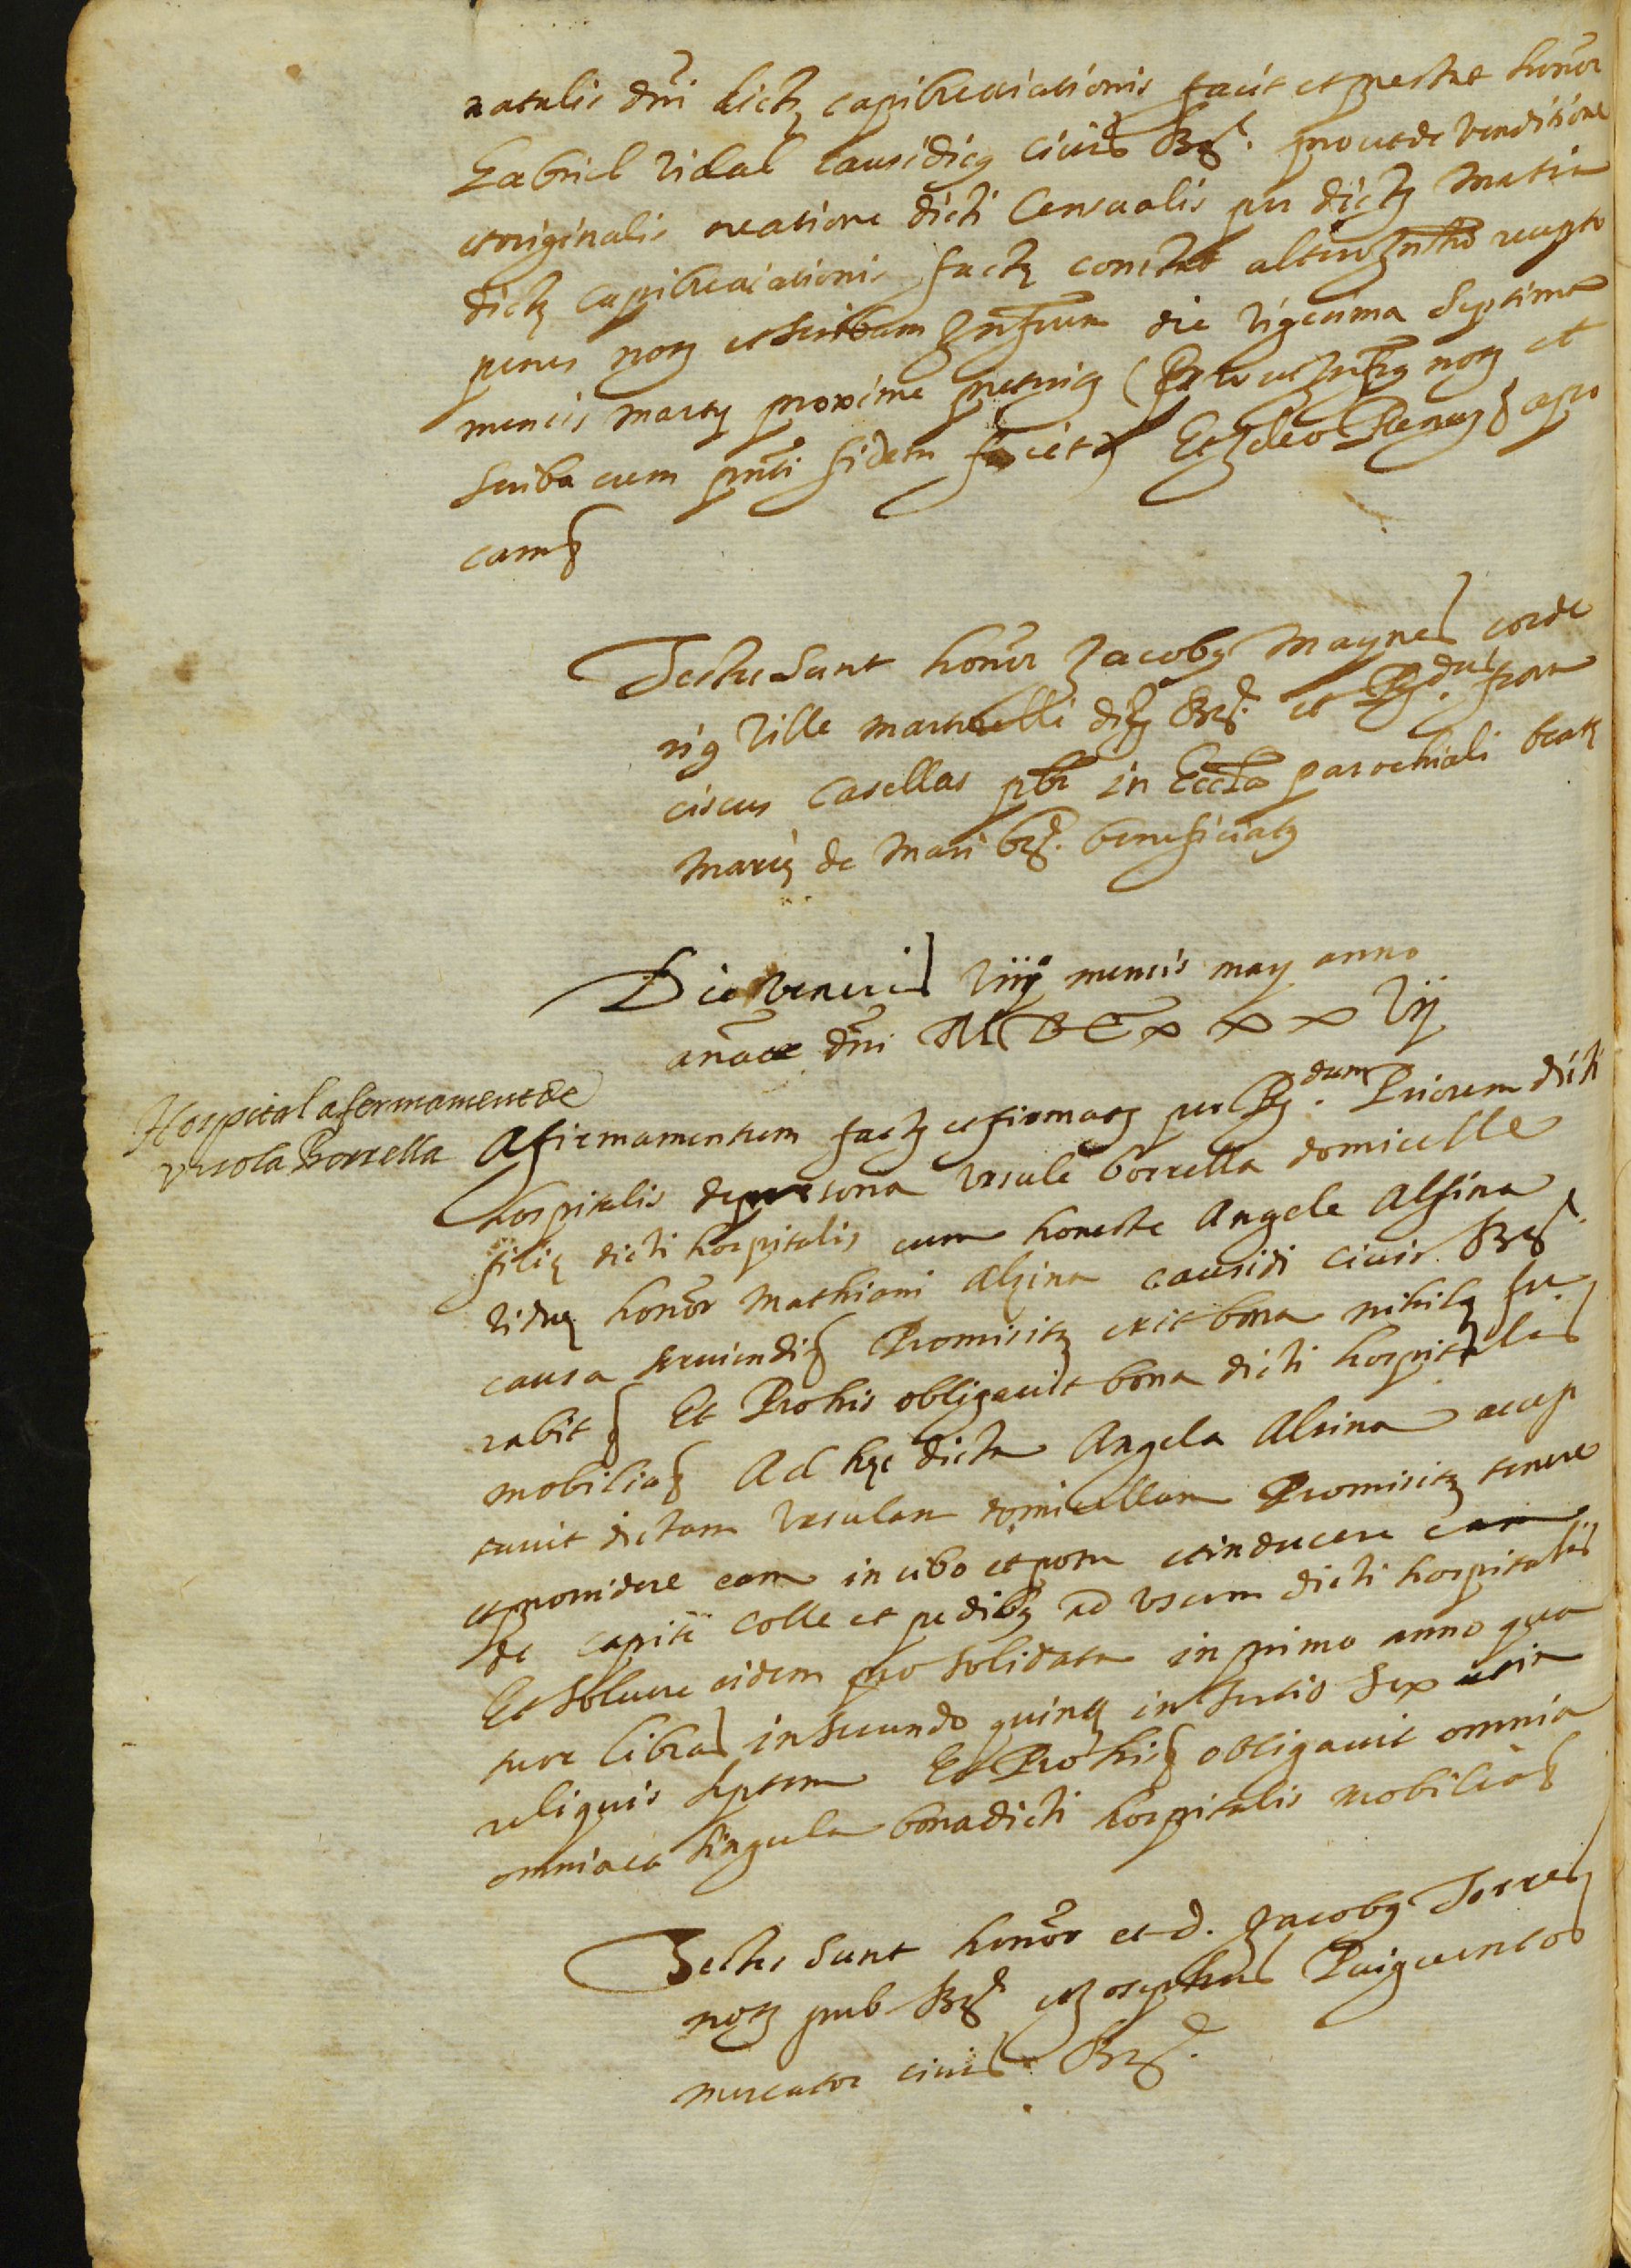 natalis dñi dictę capibreviationis facit et prestat honor
Gabriel Vidal causidicus civis Barª. prout de venditione
et originalis creatione dicti Censualis per dictum
dictę capibreviationis factę constat altero Instrõ recepto
penes not. et scribam Infrum die vigesima septima
mensis martij proxime preteriti not. et
scriba cum pñti fidem facit) Et Ideo &ª apo
cam &ª
Testes sunt honor Jacobus Maynes corde
rius Ville Martorelli dioc. Barª. et Rdus. fran
ciscus Casellas pbr in Eccla parochiali beatę
Marię de Mari Barª. beneficiatus
Die Veneris viiij mensis maij anno
a natᵉ dñi MDCxxxvij
Hospital afermament de
Ursola Borrella
Afirmamentum factum et firmatum per Rdum. Priorem dicti
hospitalis de persona Ursule Borrella domicelle
filię dicti hospitalis cum honesta Angela Alsina
viduę honor Mathiani Alsina causidi civis Barª.
causa serviendi &ª Promisitq erit bona nihilq fu
rabit &ª Et Pro his obligavit bona dicti hospitalis
mobilia &ª Ad hęc dicta Angela Alsina accep
tavit dictam Ursulam domicellam Promisitq tenere
et providere eam in cibo et potu et inducere eam
de capite colle et pedibus ad usum dicti hospitalis
Et solvere eidem pro solidata in primo anno qua
tuor libras in secundo quinq in tertio sex et in
reliquis septem Et Pro his &ª obligavit omnia
omnia et singula bona dicti hospitalis mobilia &ª
Testes sunt honor et d. Jacobus Torres
not. pub Barª et Josephus Puigvencos
mercator civis Barª.